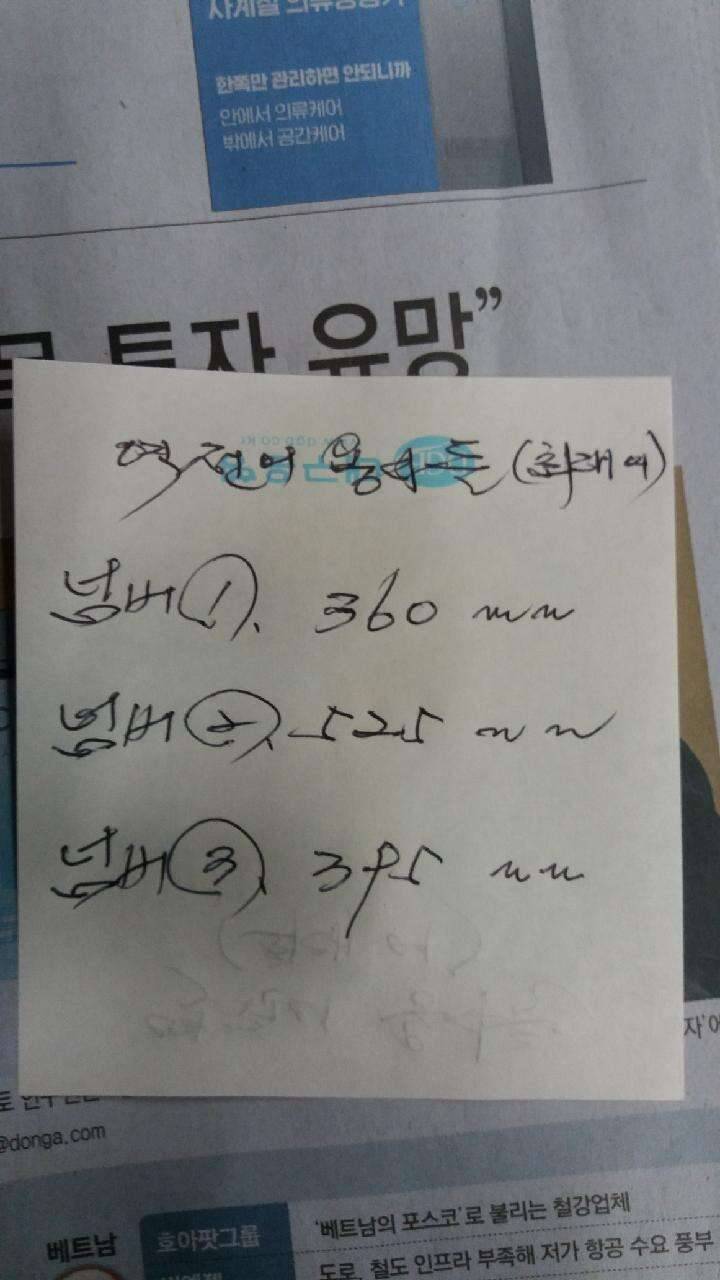 사계절 의류청정기
한쪽만 관리하면 안되니까
안에서 의류케어
밖에서 공간케어
투자 유망”
역전에 용사들 (최래이)
넘버①. 360 mm
넘버②. 525 mm
넘버③. 395 mm
자'에
@donga.com
베트남
호아팟그룹
'베트남의 포스코'로 불리는 철강업체
도로, 철도 인프라 부족해 저가 항공 수요 풍부